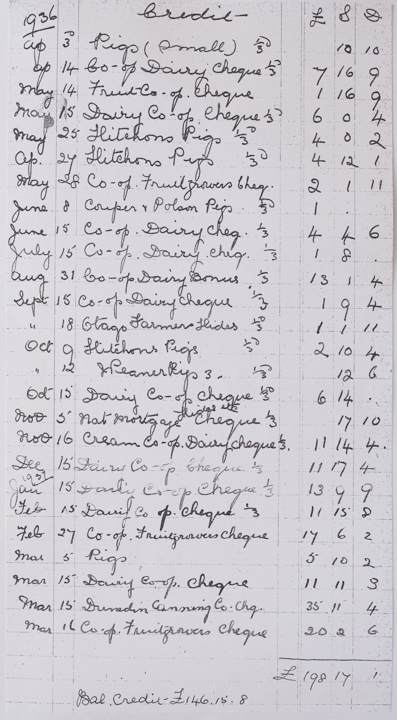 1936 Credit - £ S D
ap 3 Pigs (Small) 1/3 10 10
ap 14 Co-op Dairy Cheque 1/3 7 16 9
May 14 Fruit Co-op. Cheque 1 16 9
May 15 Dairy Co-op. Cheque 1/3 6 0 4
May 25 Hitchons Pigs 1/3 4 0 2
Ap. 27 Hitchons Pigs 1/3 4 12 1
May 28 Co-op. Fruitgrowers Cheq. 2 1 11
June 8 Couper & Polson Pigs. 1/3 1 .
June 15 Co-op. Dairy Cheq. 1/3 4 4 6
July 15 Co-op. Dairy. Chq. 1/3 1 8 .
aug 31 Co-op Dairy Bonus. 1/3 13 1 4
Sept 15 Co-op Dairy Cheque 1/3 1 9 4
" 18 Otago Farmers Hides 1/3 1 1 11
Oct 9 Hitchons Pigs 1/3 2 10 4
" 12 Pigs 3. 1/3 12 6
Oct 15 Dairy Co-op cheque 1/3 6 14 .
Nov 5 Nat Mortgage Cheque 1/3 17 10
Nov 16 Cream Co-op. Dairy cheque 1/3. 11 14 4.
Dec 15 Dairy Co-op Cheque 1/3 11 17 4.
1937
Jan 15 Dairy Co-op Cheque 1/3 13 9 9
Feb 15 Dairy Co op. cheque 1/3 11 15 8
Feb 27 Co-op. Fruitgrowers cheque 17 6 2
Mar 5 Pigs. 5 10 2
Mar 15 Dairy Co-op. Cheque 11 11 3
Mar 15 Dunedin Canning Co. Chq. 35 11 4
Mar 16 Co-op. Fruitgrowers Cheque 20 2 6
£ 198 17 1
Bal. Credit - £146. 15. 8